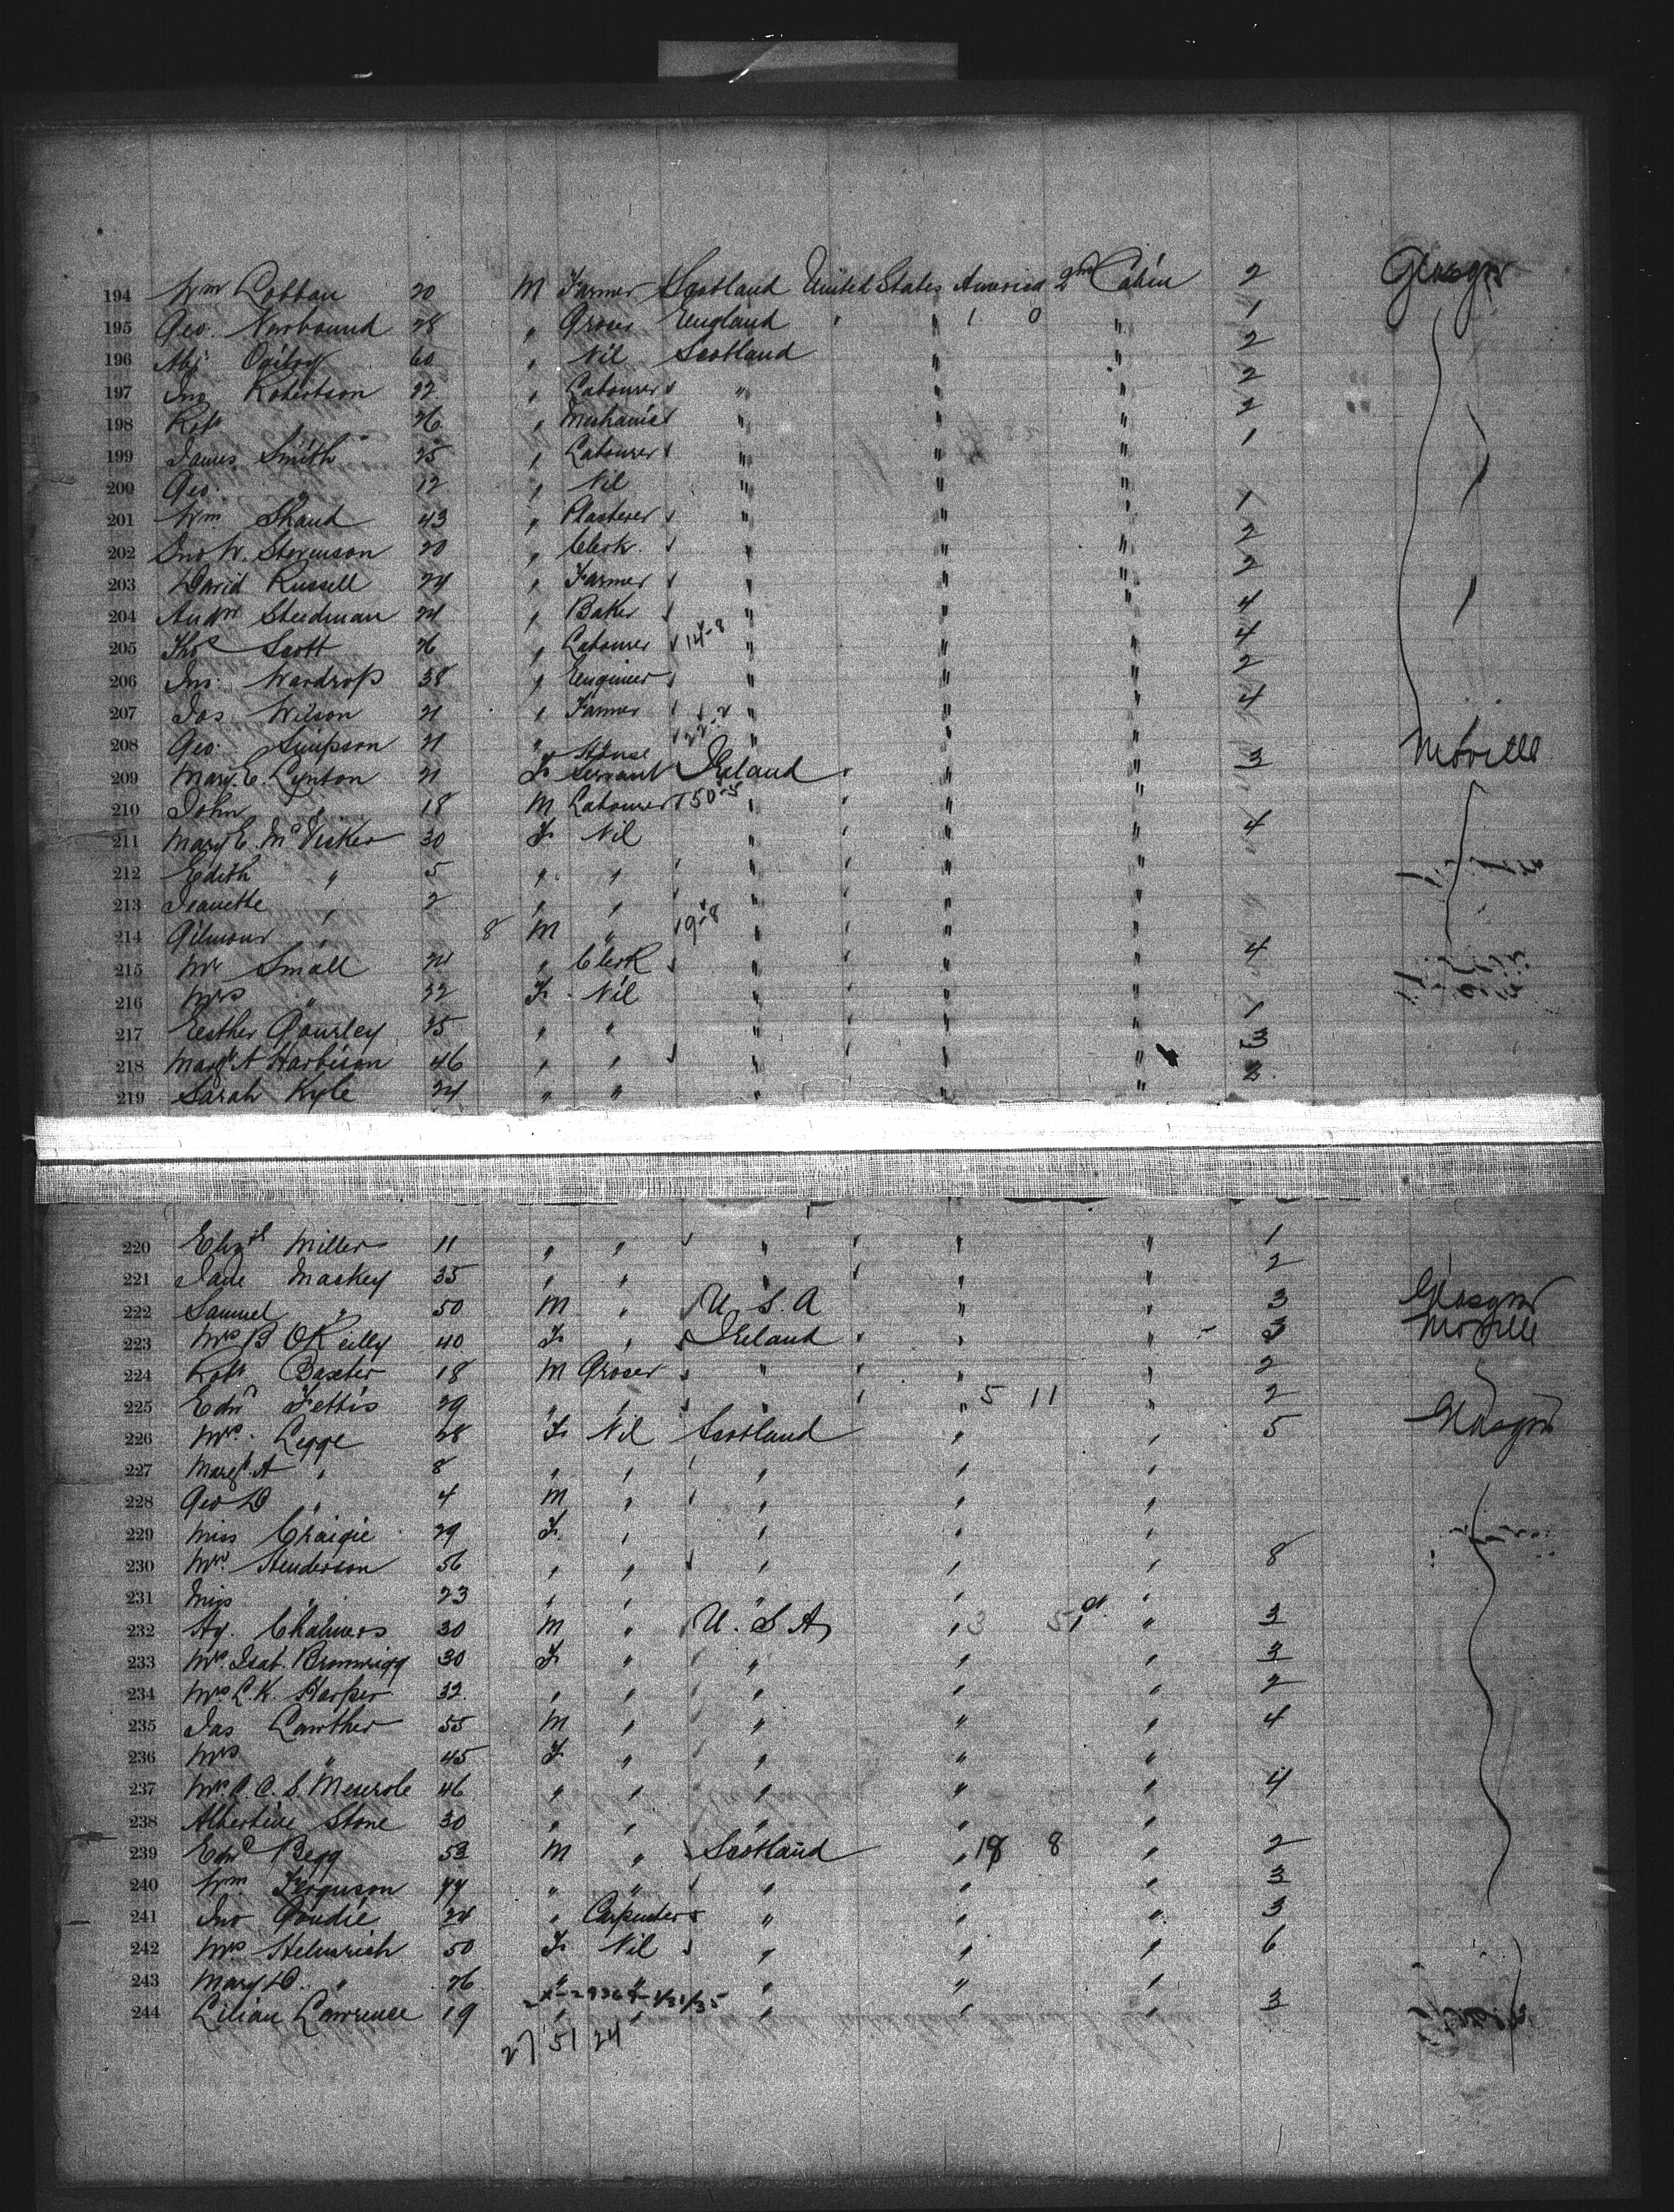 194 Wm Cobban 20 M Farmer Scotland United States America 2nd Cabin 2 Glasgow
195 Geo. 28 " England " " 1 0 " 1
196 60 " Nil Scotland " " 2
197 Jno Robertson 22 " Labourer " " " 2
198 Robt " 26 " Mechanic " " " 2
199 James Smith 25 " Labourer " " " 1
200 Geo. " 12 " Nil " " "
201 Wm Shand 43 " Plasterer " " " 1
202 Jno W. Stevenson 20 " Clerk " " " 2
203 David Russell 24 " Farmer " " " 2
204 Andw Steedman 21 " Baker " " " 4
205 Thos Scott 26 " Labourer 14-8 " " " 4
206 Jno. Wardrop 38 " Engineer " " " 2
207 Jas Wilson 21 " Farmer " " " 4
208 Geo. Simpson 21 " " 22-2 " " "
209 Mary E. Lynton 21 F House Servant Ireland " " " 3 Moville
210 John " 18 M Labourer 50-5 " " " "
211 Mary E. McVicker 30 F Nil " " " " 4
212 Edith " 5 " " " " " "
213 Jeanette " 2 " " " " " "
214 Gilmour " 8 M " 9-8 " " " "
215 Mr Small 24 " Clerk " " " " 4
216 Mrs " 22 F Nil " " " "
217 Esther Gourley 25 " " " " " " 1
218 Margt A Harbison 46 " " " " " " 3
219 Sarah Kyle 24 " " " " " " 2
220 Elizth Miller 11 " " " " " " 1
221 Jane Maskey 35 " " " " " " 2
222 Samuel " 50 M " U.S.A " " 3 Glasgow
223 Mrs B O'Reilly 40 F " Ireland " " " 3 Moville
224 Robt Baxter 18 M Groser " " " " 2
225 Edwd Fettis 29 " " " " " 5 11 " 2
226 Mrs. Legge 28 F Nil Scotland " " 5 Glasgow
227 Margt. A " 8 " " " " "
228 Geo D " 4 M " " " "
229 Miss Craigie 29 F " " " "
230 Mrs. Henderson 56 " " " " " 8
231 Miss " 23 " " " " "
232 Hy. Chalmers 30 M " U.S.A " 3 5 " 3
233 Mrs. Isab. 30 F " " " " 3
234 Mrs L.K. Harper 32 " " " " " 2
235 Jas Lawther 55 M " " " " 4
236 Mrs " 45 F " " " "
237 Mrs C.S. 46 " " " " " 4
238 Albertine Stone 30 " " " " "
239 Edwd Begg 53 M " Scotland " 8 " 2
240 Wm Ferguson 44 " " " " " 3
241 Jno Goudie 24 " Carpenter " " " 3
242 Mrs 50 F Nil " " " 6
243 Mary D. " 26 " " " " "
244 Lilian Lawrence 19 " " " " " 3
27 51 24